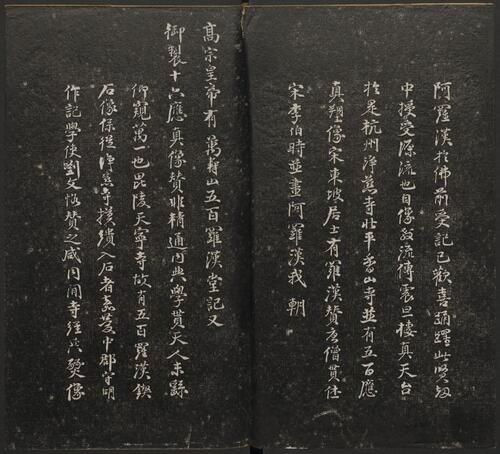 阿羅漢於佛前受記已歡喜踊躍此賢劫
中授受源流也自像教流傳震旦棲真天台
於是杭州淨慈寺北平香山寺並有五百應
真翔像宋東坡居士有羅漢贊唐僧貫休
宋李伯時並畫阿羅漢我 朝
高宗皇帝有 萬壽山五百羅漢堂記又
御製十六應真像贊非精通內典學貫天人未繇
仰窺萬一也毘陵天寧寺故有五百羅漢鐫
石像係從淨慈寺摸繢入石者嘉慶中郡守明
作記學使劉文恪贊之咸同間寺經兵燹像